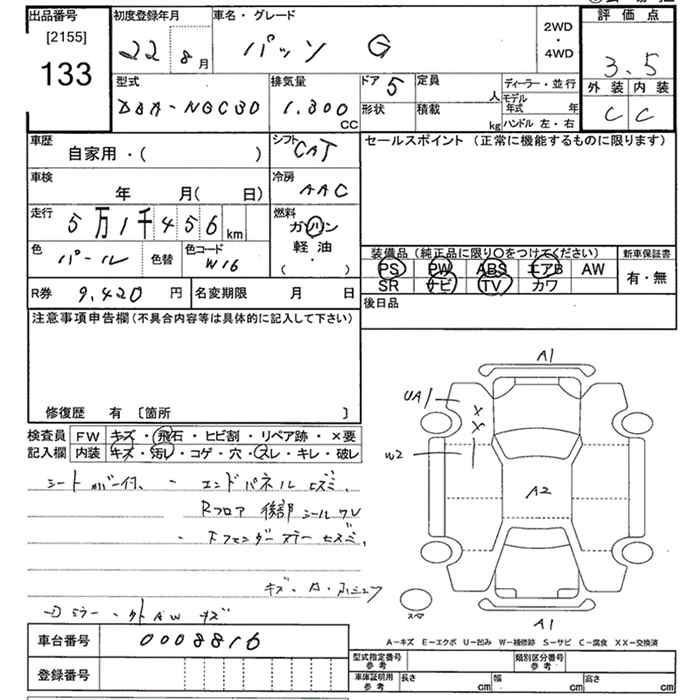 出品番号
[2155]
133
初度登録年月
22 8 月
車名・グレード
パッソ G
2WD
・
4WD
評価点
3.5
外装 内装
C C
型式
DBA-NGC30
排気量
1,300
CC
ドア 5
形状
定員
人
積載
kg
ディーラー・並行
モデル
年式 年
ハンドル 左・右
車歴
自家用・( )
シフト
CAT
車検
年 月( 日)
冷房
AAC
走行
5万1千456 km
燃料
ガソリン
軽油
( ・ )
色
パール
色替
色コード
W16
R券 9,420 円
名変期限 月 日
セールスポイント (正常に機能するものに限ります)
装備品 (純正品に限り○をつけてください)
新車保証書
PS PW ABS エアB AW
SR ナビ TV カワ
有・無
後日品
注意事項申告欄(不具合内容等は具体的に記入して下さい)
修復歴 有 [箇所 ]
検査員
記入欄
FW キズ・飛石・ヒビ割・リペア跡・×要
内装 キズ・汚レ・コゲ・穴・スレ・キレ・破レ
シートカバー付、 - エンドパネル
Rフロア 後部 シール
キズ・A・
A1
UA1
X
X
W2
A2
A1
スペア
A-キズ E-エクボ U-凹み W-補修跡 S-サビ C-腐食 XX-交換済
車台番号 0008816
登録番号
型式指定番号
参考
類別区分番号
参考
車庫証明用
参考
長さ cm 幅 cm 高さ cm